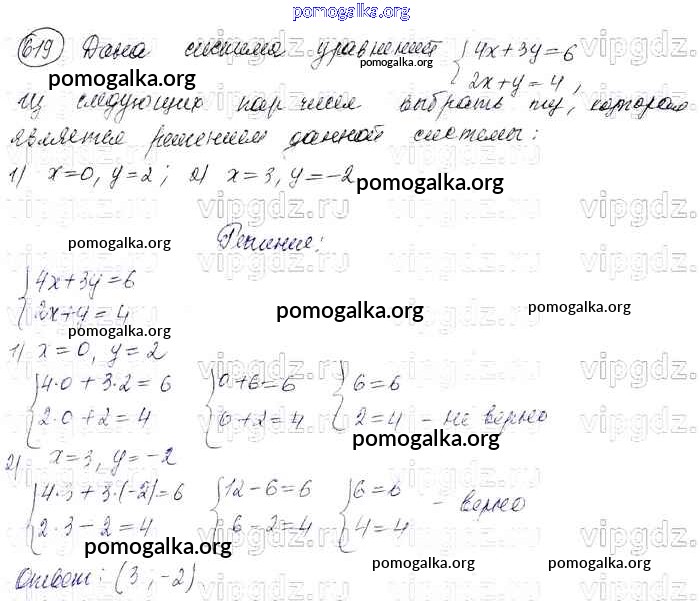 pomogalka.org
619 Дана система уравнений { 4x+3y=6
2x+y=4,
pomogalka.org
pomogalka.org
Из следующих пар чисел выбрать ту, которая
является решением данной системы:
1) x=0, y=2; 2) x=3, y=-2
pomogalka.org
vipgdz.ru
Решение:
pomogalka.org
{ 4x+3y=6
2x+y=4
pomogalka.org
pomogalka.org
pomogalka.org
1) x=0, y=2
{ 4·0+3·2=6 { 0+6=6 { 6=6
2·0+2=4 0+2=4 2=4 - не верно
pomogalka.org
2) x=3, y=-2
{ 4·3+3·(-2)=6 { 12-6=6 { 6=6 - верно
2·3-2=4 6-2=4 4=4
pomogalka.org
pomogalka.org
pomogalka.org
Ответ: (3;-2)